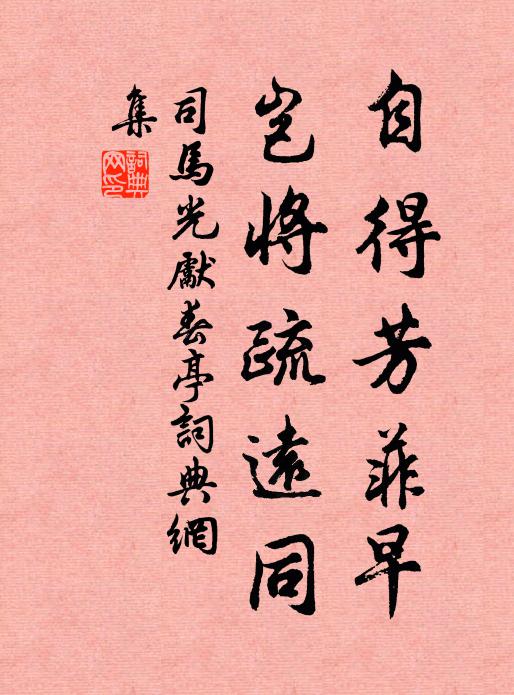 自得芳菲早
岂將疏遠同
司馬光獻春亭詞典網
集
詞典
网印